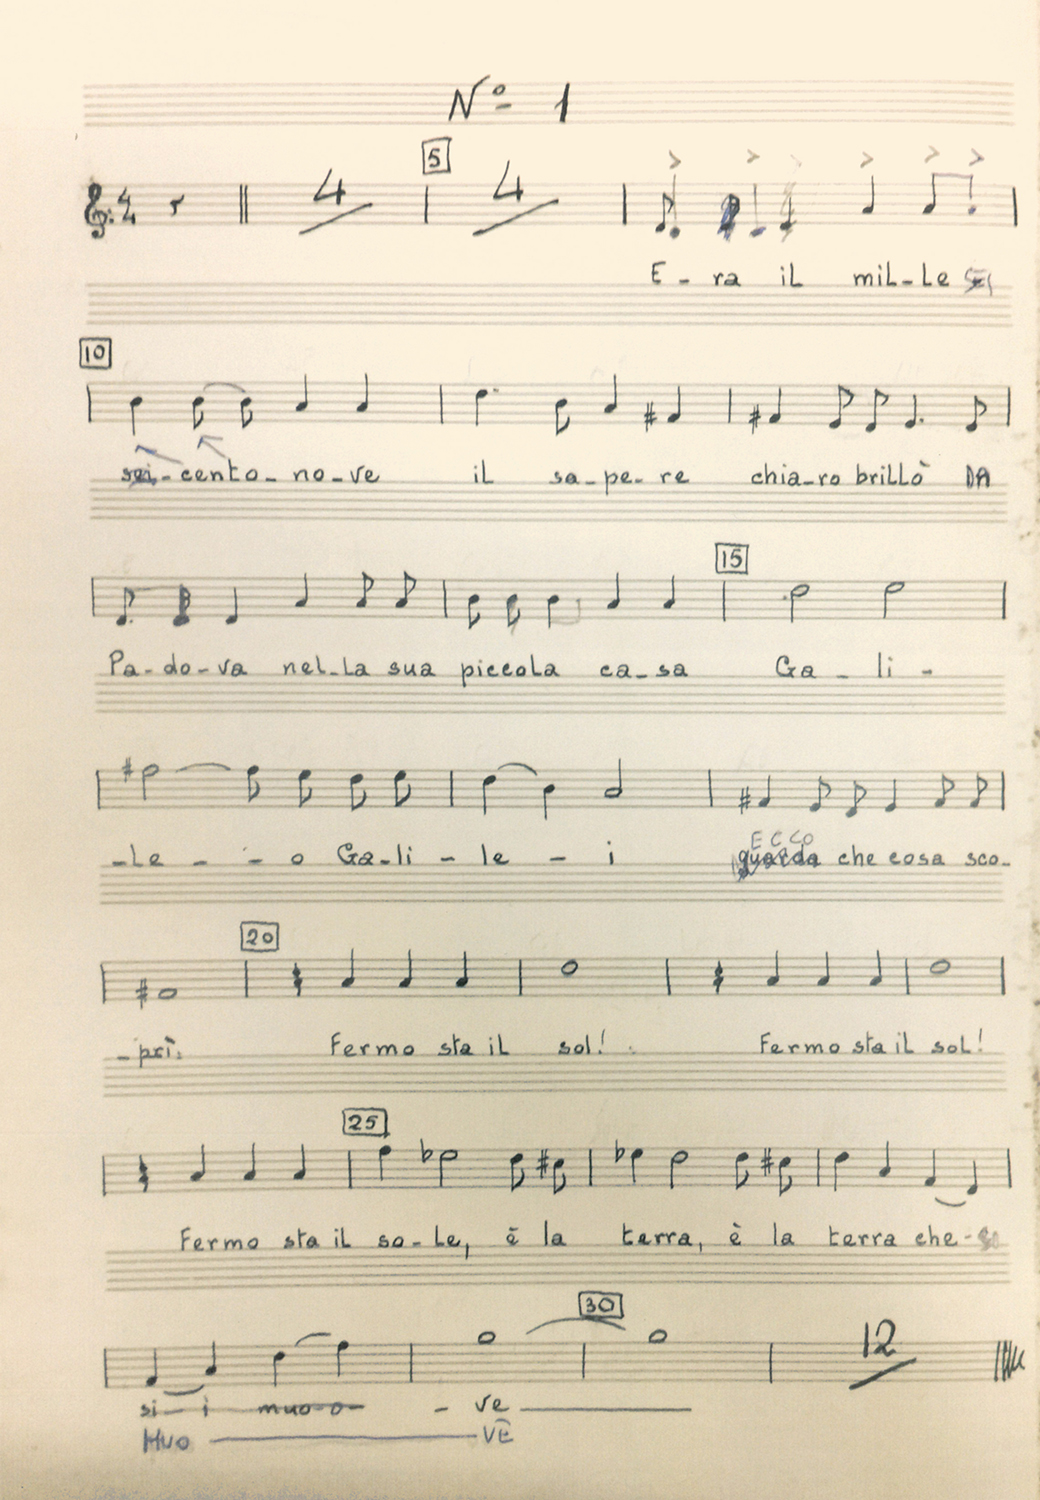 Nº 1
4 5 4
E - ra il mil - le
10
sei - cento - no - ve il sa - pe - re chia - ro brillò DA
15
Pa - do - va nel - la sua piccola ca - sa Ga - li -
ECCO
- le - - o Ga - li - le - i guarda che cosa sco -
20
- prì. Fermo sta il sol! Fermo sta il sol!
25
Fermo sta il so - le, è la terra, è la terra che - si
30
12
si - i muo - o - - ve
MUO VE